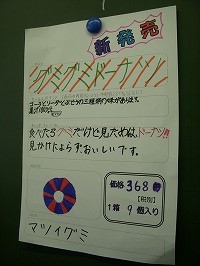 新発売
グミグミドーナツ!!
コーラとソーダとぶどうの三種類の味があります。
食べたらグミだけど見ためは、ドーナツ!!
見かけによらずおいしいです。
価格 368円
【税別】
1箱 9個入り
マツイグミ